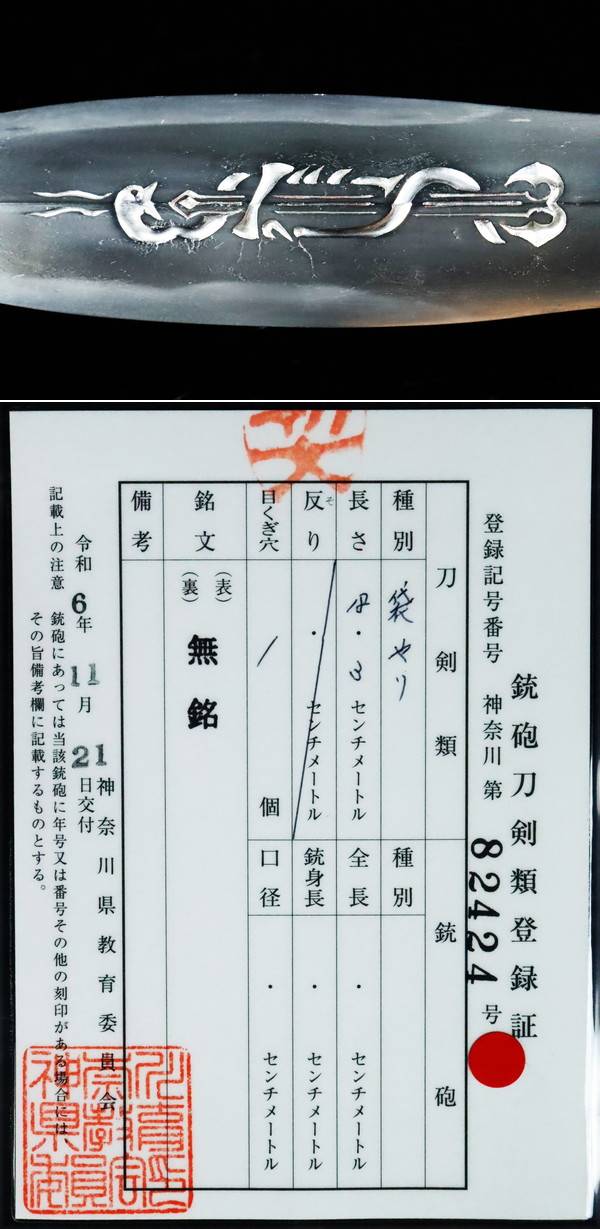 銃砲刀剣類登録証
登録記号番号 神奈川第 82424 号
刀剣類
種別 袋やり
長さ ・ センチメートル
反り そ ・ センチメートル
目くぎ穴 1 個
銘文 (表) (裏) 無銘
備考
銃砲
種別
全長 ・ センチメートル
銃身長 ・ センチメートル
口径 ・ センチメートル
神奈川県教育委員会
令和6年11月21日交付
記載上の注意 銃砲にあっては当該銃砲に年号又は番号その他の刻印がある場合には、
その旨備考欄に記載するものとする。